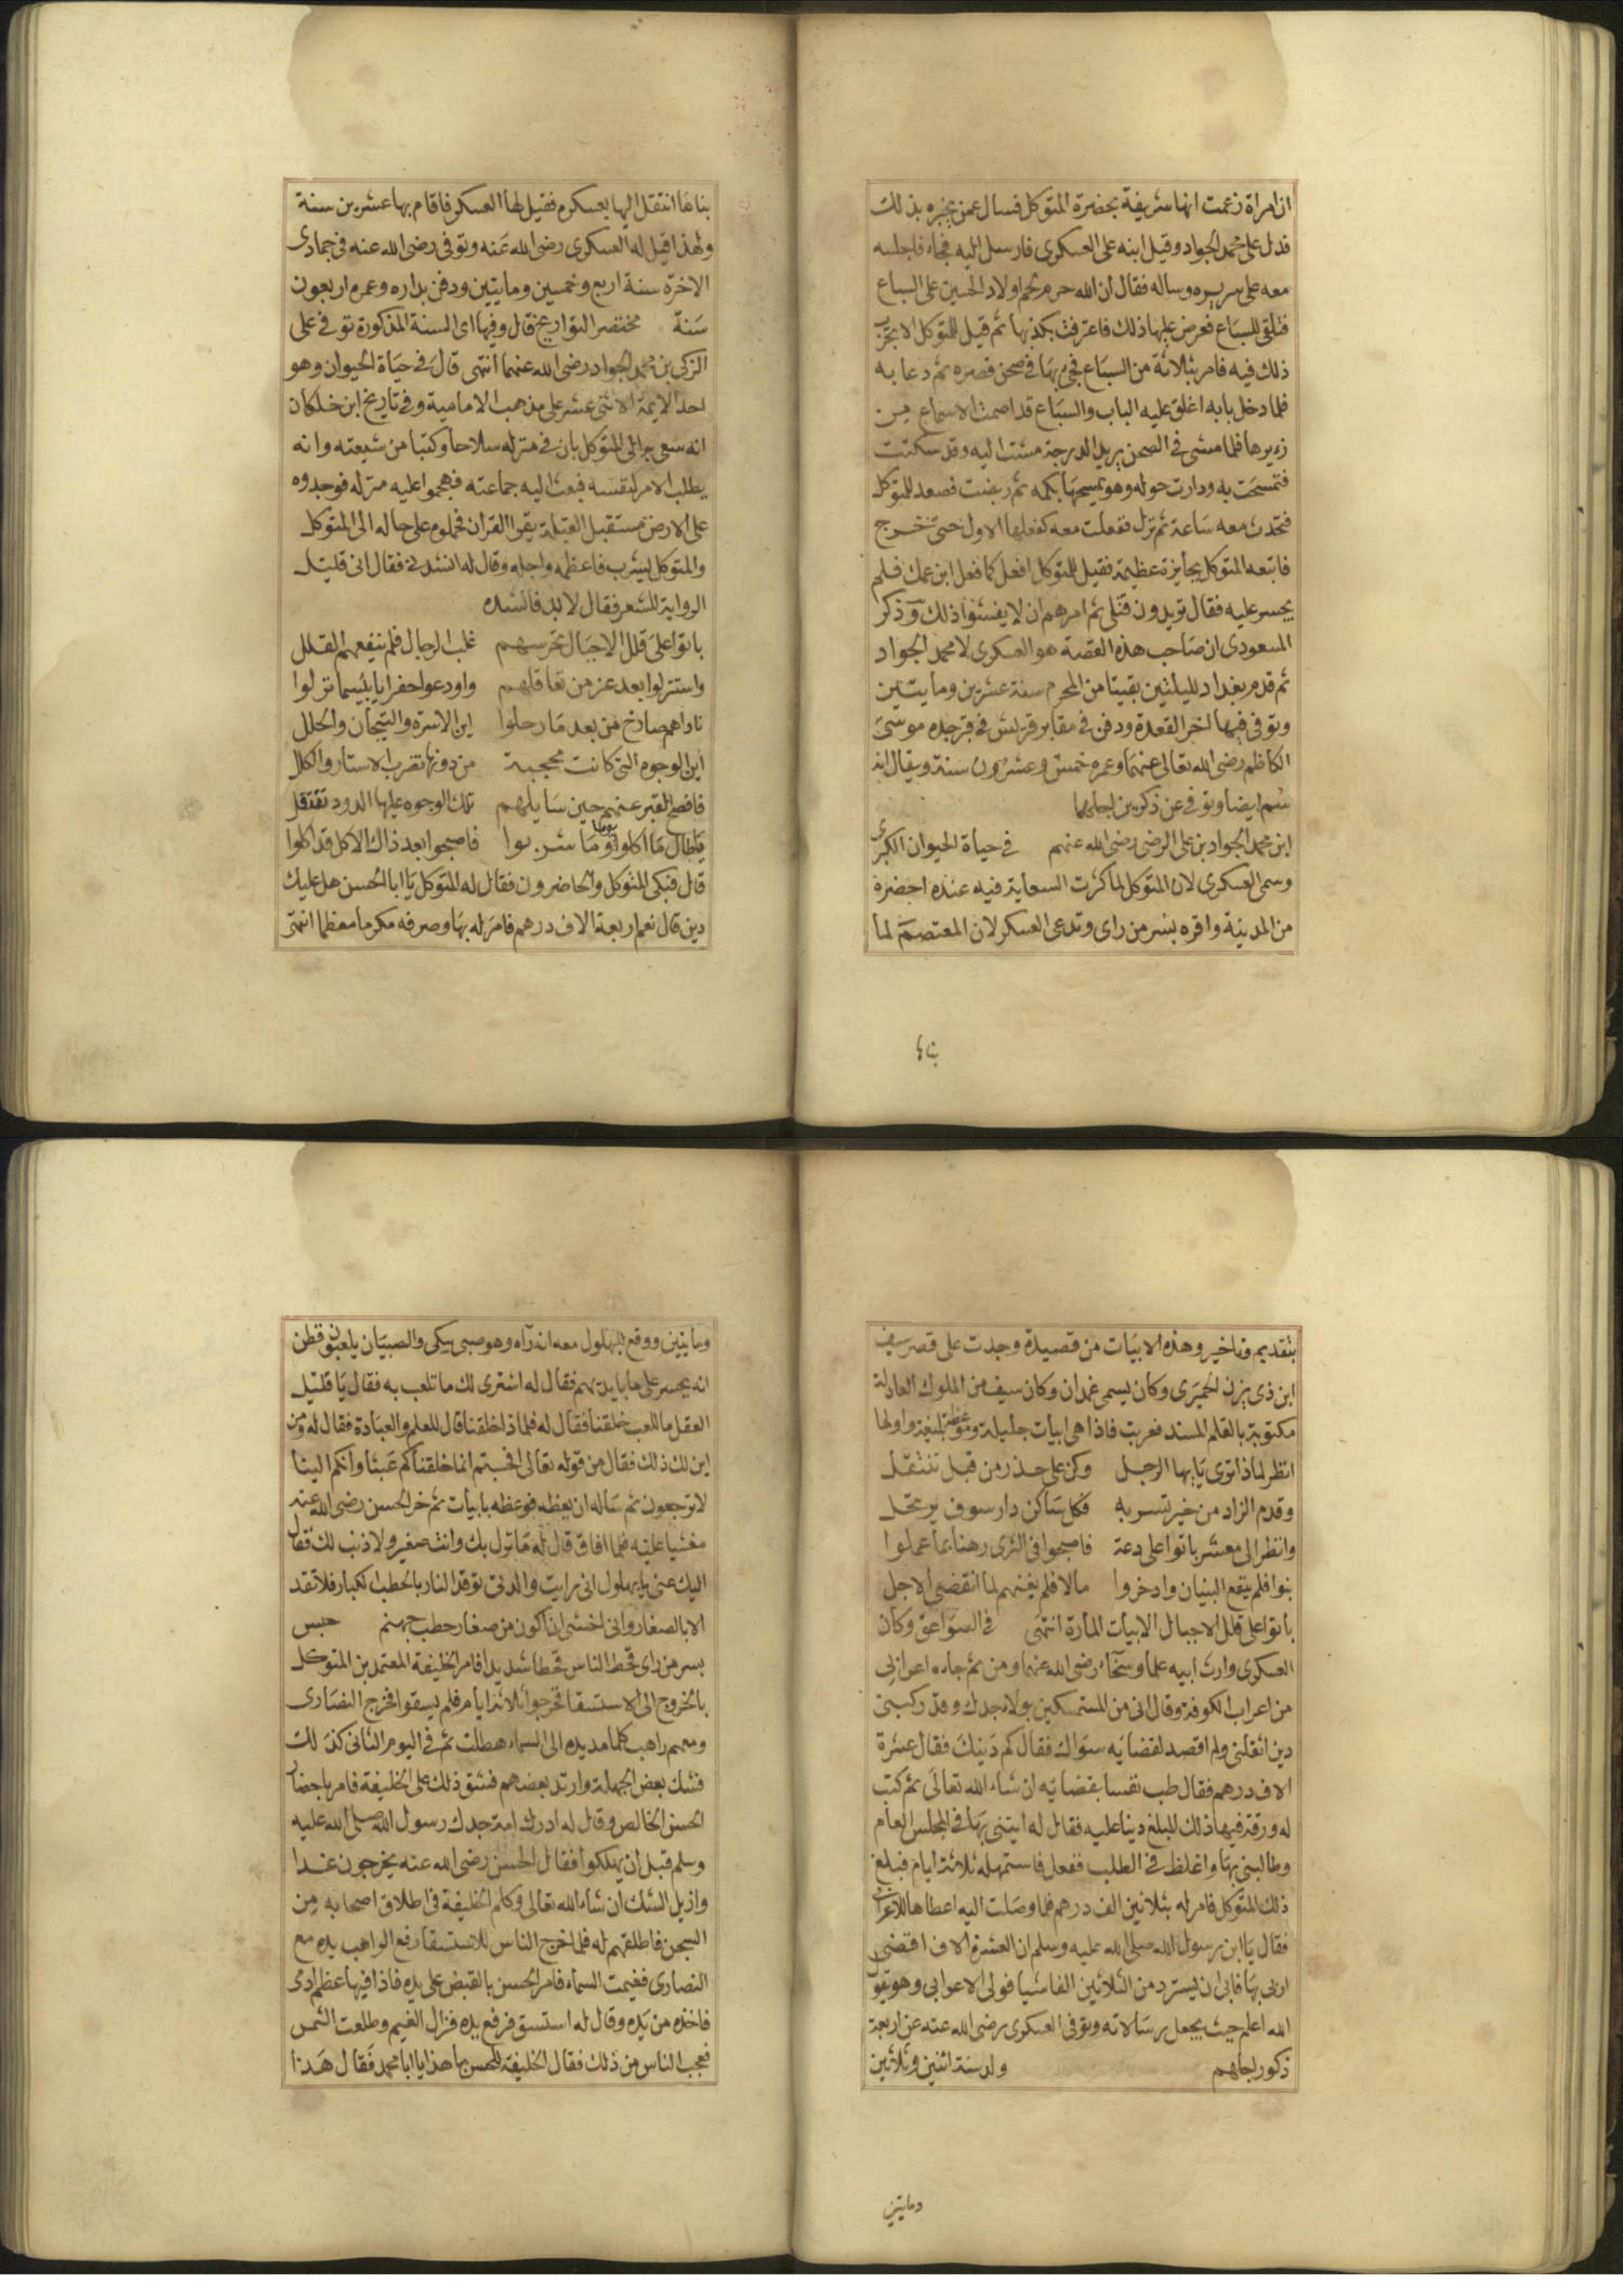 ان امراة زعمت انها شريفة بحضرة المتوكل فسال عمن يخبره بذلك
فدل على محمد الجواد وقيل ابنه على العسكرى فارسل اليه فجاء فاجلسه
معه على سريره وساله فقال ان الله حرم لحم اولاد الحسين على السباع
فتلقى للسباع فعرض عليها ذلك فاعترفت بكذبها ثم قيل للمتوكل الا تجرب
ذلك فيه فامر بثلاثة من السباع فجئ بها فى صحن قصره ثم دعا به
فلما دخل بابه اغلق عليه الباب والسباع قد اصمت الاسماع من
زئيرها فلما مشى فى الصحن يريد الدرجة مشت اليه وقد سكنت
فتمسحت به ودارت حوله وهو يمسحها بكمه ثم ربضت فصعد للمتوكل
فتحدث معه ساعة ثم نزل ففعلت معه كفعلها الاول حتى خرج
فاتبعه المتوكل بجايزة عظيمة فقيل للمتوكل افعل كما فعل ابن عمك فلم
يجسر عليه فقال تريدون قتلى ثم امرهم ان لا يفشوا ذلك وذكر
المسعودى ان صاحب هذه القصة هو العسكرى لا محمد الجواد
ثم قدم بغداد لليلتين بقيتا من المحرم سنة عشرين ومايتين
وتوفى فيها اخر القعدة ودفن فى مقابر قريش فى قبر جده موسى
الكاظم رضى الله تعالى عنهما وعمره خمس وعشرون سنة ويقال انه
سم ايضا وتوفى عن ذكرين اجلهما
ابن محمد الجواد بن على الرضى رضى الله عنهم فى حياة الحيوان الكبرى
وسمى العسكرى لان المتوكل لما كثرت السعاية فيه عنده احضره
من المدينة واقره بسر من راى وتدعى العسكر لان المعتصم لما
بناها
بناها انتقل اليها بعسكره فقيل لها العسكر فاقام بها عشرين سنة
ولهذا قيل له العسكرى رضى الله عنه وتوفى رضى الله عنه فى جمادى
الاخرة سنة اربع وخمسين ومايتين ودفن بداره وعمره اربعون
سنة مختصر التواريخ قال وفيها اى السنة المذكورة توفى على
الزكى بن محمد الجواد رضى الله عنهما انتهى قال فى حياة الحيوان وهو
احد الايمة الاثنى عشر على مذهب الامامية وفى تاريخ ابن خلكان
انه سعى به الى المتوكل بان فى منزله سلاحا وكتبا من شيعته وانه
يطلب الامر لنفسه فبعث اليه جماعته فهجموا عليه منزله فوجدوه
على الارض مستقبل القبلة يقرا القران فحملوه على حاله الى المتوكل
والمتوكل يشرب فاعظمه واجله وقال له انشدنى فقال انى قليل
الرواية للشعر فقال لا بد فانشده
باتوا على قلل الاجبال تحرسهم غلب الرجال فلم ينفعهم القلل
واستنزلوا بعد عز من معاقلهم واودعوا حفرا يا بئسما نزلوا
ناداهم صارخ من بعد ما رحلوا اين الاسرة والتيجان والحلل
اين الوجوه التى كانت محجبة من دونها تضرب الاستار والكلل
فافصح القبر عنهم حين سايلهم تلك الوجوه عليها الدود تقتتل
يا طال ما اكلوا يوما وما شربوا فاصبحوا بعد ذاك الاكل قد اكلوا
قال فبكى المتوكل والحاضرون فقال له المتوكل يا ابا الحسن هل عليك
دين قال نعم اربعة الاف درهم فامر له بها وصرفه مكرما معظما انتهى
بتقديم وتاخير وهذه الابيات من قصيدة وجدت على قصر سيف
ابن ذى يزن الحميرى وكان يسمى غمدان وكان سيف من الملوك العادلة
مكتوبة بالقلم المسند فعربت فاذا هى ابيات جليلة وموعظة بليغة واولها
انظر لماذا ترى يا ايها الرجل وكن على حذر من قبل تنتقل
وقدم الزاد من خير تسر به فكل ساكن دار سوف يرتحل
وانظر الى معشر باتوا على دعة فاصبحوا فى الثرى رهنا بما عملوا
بنوا فلم ينفع البنيان وادخروا مالا فلم يغنهم لما انقضى الاجل
باتوا على قلل الاجبال الابيات المارة انتهى فى الصواعق وكان
العسكرى وارث ابيه علما وسخاء رضى الله عنهما ومن ثم جاءه اعرابى
من اعراب الكوفة وقال انى من المستمسكين بولاء جدك وقد ركبنى
دين اثقلنى ولم اقصد لقضايه سواك فقال كم دينك فقال عشرة
الاف درهم فقال طب نفسا بقضايه ان شاء الله تعالى ثم كتب
له ورقة فيها ذلك المبلغ دينا عليه فقال له ايتنى بها فى المجلس العام
وطالبنى بها واغلظ فى الطلب ففعل فاستمهله ثلاثة ايام فبلغ
ذلك المتوكل فامر له بثلاثين الف درهم فلما وصلت اليه اعطاها للاعرابى
فقال يا ابن رسول الله صلى الله عليه وسلم ان العشرة الاف اقتضى
اربى بها فابى ان يسترد من الثلاثين الفا شيا فولى الاعرابى وهو يقول
الله اعلم حيث يجعل رسالاته وتوفى العسكرى رضى الله عنه عن اربعة
ذكور اجلهم ولد سنة اثنين وثلاثين
ومايتين
ومايتين ووقع لبهلول معه انه رآه وهو صبى يبكى والصبيان يلعبون فظن
انه يحسر على ما بايديهم فقال له اشترى لك ما تلعب به فقال يا قليل
العقل ما للعب خلقنا فقال له فلماذا خلقنا قال للعلم والعبادة فقال له ومن
اين لك ذلك فقال من قوله تعالى افحسبتم انما خلقناكم عبثا وانكم الينا
لا ترجعون ثم ساله ان يعظه فوعظه بابيات ثم خر الحسن رضى الله عنه
مغشيا عليه فلما افاق قال له ما نزل بك وانت صغير ولا ذنب لك فقال
اليك عنى يا بهلول انى رايت والدتى توقد النار بالحطب الكبار فلا تقد
الا بالصغار وانى اخشى ان اكون من صغار حطب جهنم حبس
بسر من راى قحط الناس قحطا شديدا فامر الخليفة المعتمد بن المتوكل
بالخروج الى الاستسقا فخرجوا ثلاثة ايام فلم يسقوا فخرج النصارى
ومعهم راهب كلما مد يده الى السماء هطلت ثم فى اليوم الثانى كذلك
فشك بعض الجهلة وارتد بعضهم فشق ذلك على الخليفة فامر باحضار
الحسن الخالص وقال له ادرك امة جدك رسول الله صلى الله عليه
وسلم قبل ان يهلكوا فقال الحسن رضى الله عنه يخرجون غدا
وازيل الشك ان شاء الله تعالى وكلم الخليفة فى اطلاق اصحابه من
السجن فاطلقهم له فلما خرج الناس للاستسقا رفع الراهب يده مع
النصارى فغيمت السماء فامر الحسن بالقبض على يده فاذا فيها عظم ادمى
فاخذه من يده وقال له استسق فرفع يده فزال الغيم وطلعت الشمس
فعجب الناس من ذلك فقال الخليفة للحسن ما هذا يا ابا محمد فقال هذا